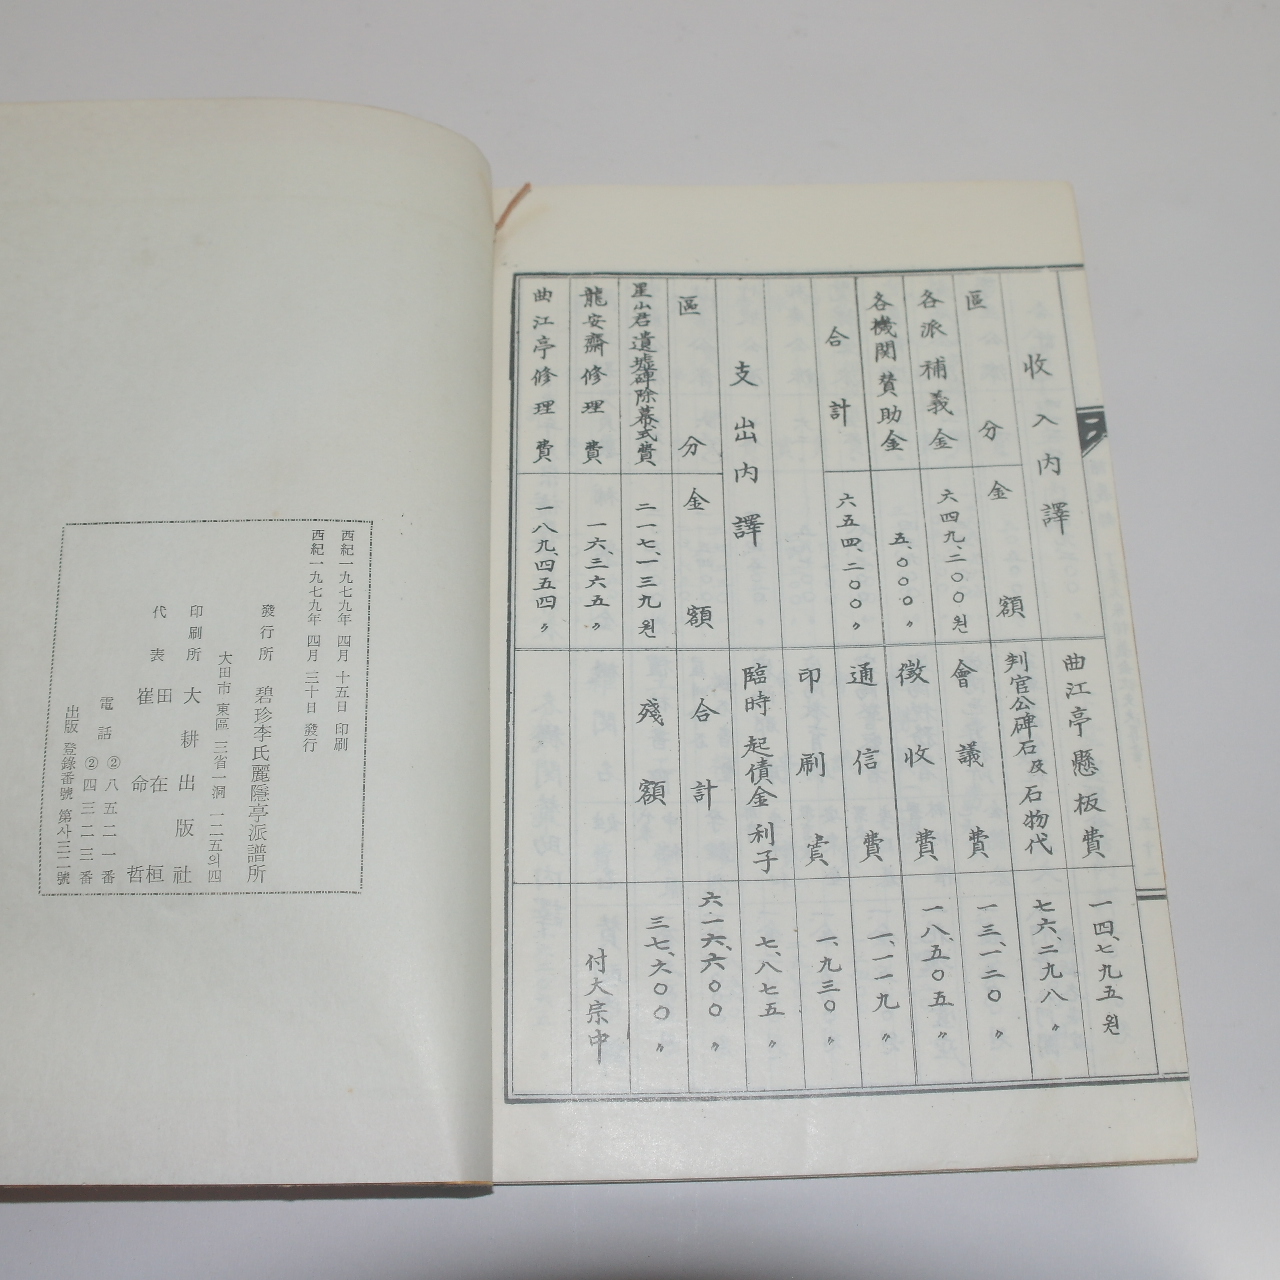 收入内譯
區分 金額
各派補義金 六四九、二〇〇원
各機関賛助金 五、〇〇〇〃
合計 六五四、二〇〇〃
支出内譯
區分 金額
星山君遺墟碑除幕式費 二一七、一三九원
龍安齋修理費 一六、三六五〃
曲江亭修理費 一八九、四五四〃
曲江亭懸板費 一四、七九五원
判官公碑石及石物代 七六、二九八〃
會議費 一三、一二〇〃
徴收費 一八、五〇五〃
通信費 一、一一九〃
印刷費 一、九三〇〃
臨時起債金利子 七、八七五〃
合計 六一六、六〇〇〃
殘額 三七、六〇〇〃
付大宗中
西紀一九七九年 四月 十五日 印刷
西紀一九七九年 四月 三十日 發行
發行所 碧珍李氏麗隱亭派譜所
大田市 東區 三省一洞 一二五의四
印刷所 大耕出版社
代表 田在桓
崔命哲
電話 ②八五二一番
②四三二三番
出版 登錄番號 第사三二號